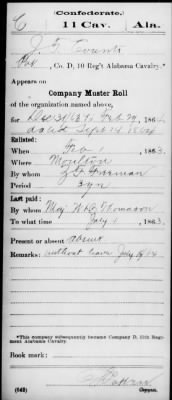 (Confederate.)
C 11 Cav. Ala.
J. G. Counts
Co. D, 10 Reg't Alabama Cavalry.*
Appears on
Company Muster Roll
of the organization named above,
for Dec 31, 1863, Feb 29, 1864
Sept 14 1864
Enlisted:
When 1863.
Where Moulton
By whom
Period 3 yrs
Last paid:
By whom Maj. Thomason
To what time July 1, 1863.
Present or absent absent
Remarks: without leave July
*This company subsequently became Company D, 11th Regiment Alabama Cavalry.
Book mark:
(642) Copyist.